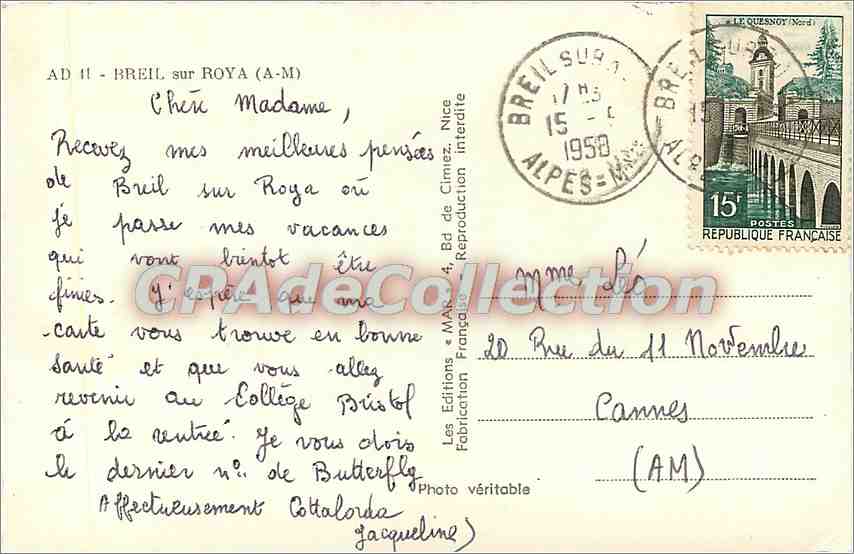 AD 11 - BREIL sur ROYA (A-M)
Chère Madame,
Recevez mes meilleures pensées
de Breil sur Roya où
je passe mes vacances
qui vont bientôt être
finies. J'espère que ma
carte vous trouve en bonne
santé et que vous allez
revenir au Collège Bristol
à la rentrée. Je vous dois
le dernier n° de Butterfly
Affectueusement Cottalorda
Jacqueline)
Les Editions « MAR » 4, Bd de Cimiez, Nice
Fabrication Française - Reproduction interdite
Photo véritable
BREIL SUR
17 H
15 -
1958
ALPES = MMES
BREIL SUR
15
AL
LE QUESNOY (Nord)
15F
POSTES
REPUBLIQUE FRANÇAISE
Mme Léo
20 Rue du 11 Novembre
Cannes
(AM)
CPAdeCollection